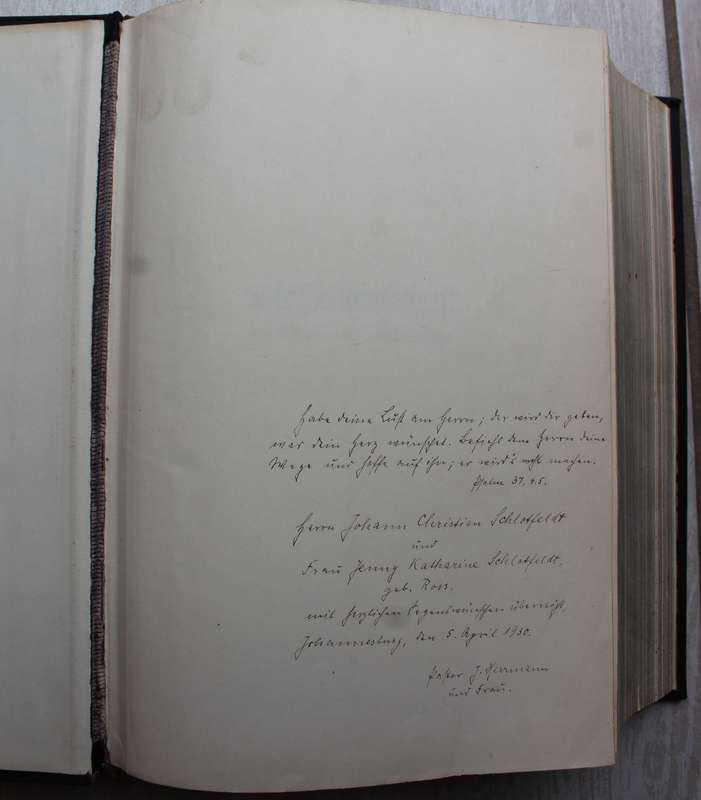 Habe deine Lust am Herrn; der wird dir geben,
was dein Herz wünschet. Befiehl dem Herrn deine
Wege und hoffe auf ihn; er wird's wohl machen.
Psalm 37, 4.5.
Herrn Johann Christian Schlotfeldt
und
Frau Jenny Katharine Schlotfeldt,
geb. Ross.
mit herzlichen Segenswünschen überreicht,
Johannesburg, den 5. April 1930.
Pastor J. Herrmann
und Frau.